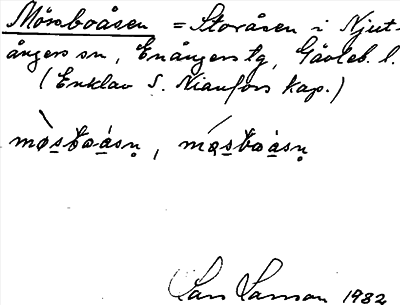 Mössboåsen = Storåsen i Njut-
ångers sn, Enångers tg, Gävleb. l.
(Enklav S. Nianfors kap.)
Lars Larsson 1982